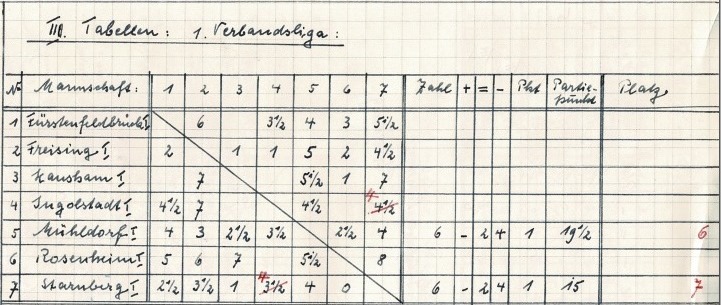 III. Tabellen: 1. Verbandsliga:
№ Mannschaft: 1 2 3 4 5 6 7 Zahl + = - Pkt Partie-punkt Platz
1 Fürstenfeldbruck I 6 3½ 4 3 5½
2 Freising I 2 1 1 5 2 4½
3 Hausham I 7 5½ 1 7
4 Ingolstadt I 4½ 7 4½ 4 4½
5 Mühldorf I 4 3 2½ 3½ 2½ 4 6 - 2 4 1 19½ 6
6 Rosenheim I 5 6 7 5½ 8
7 Starnberg I 2½ 3½ 1 4 3½ 4 0 6 - 2 4 1 15 7